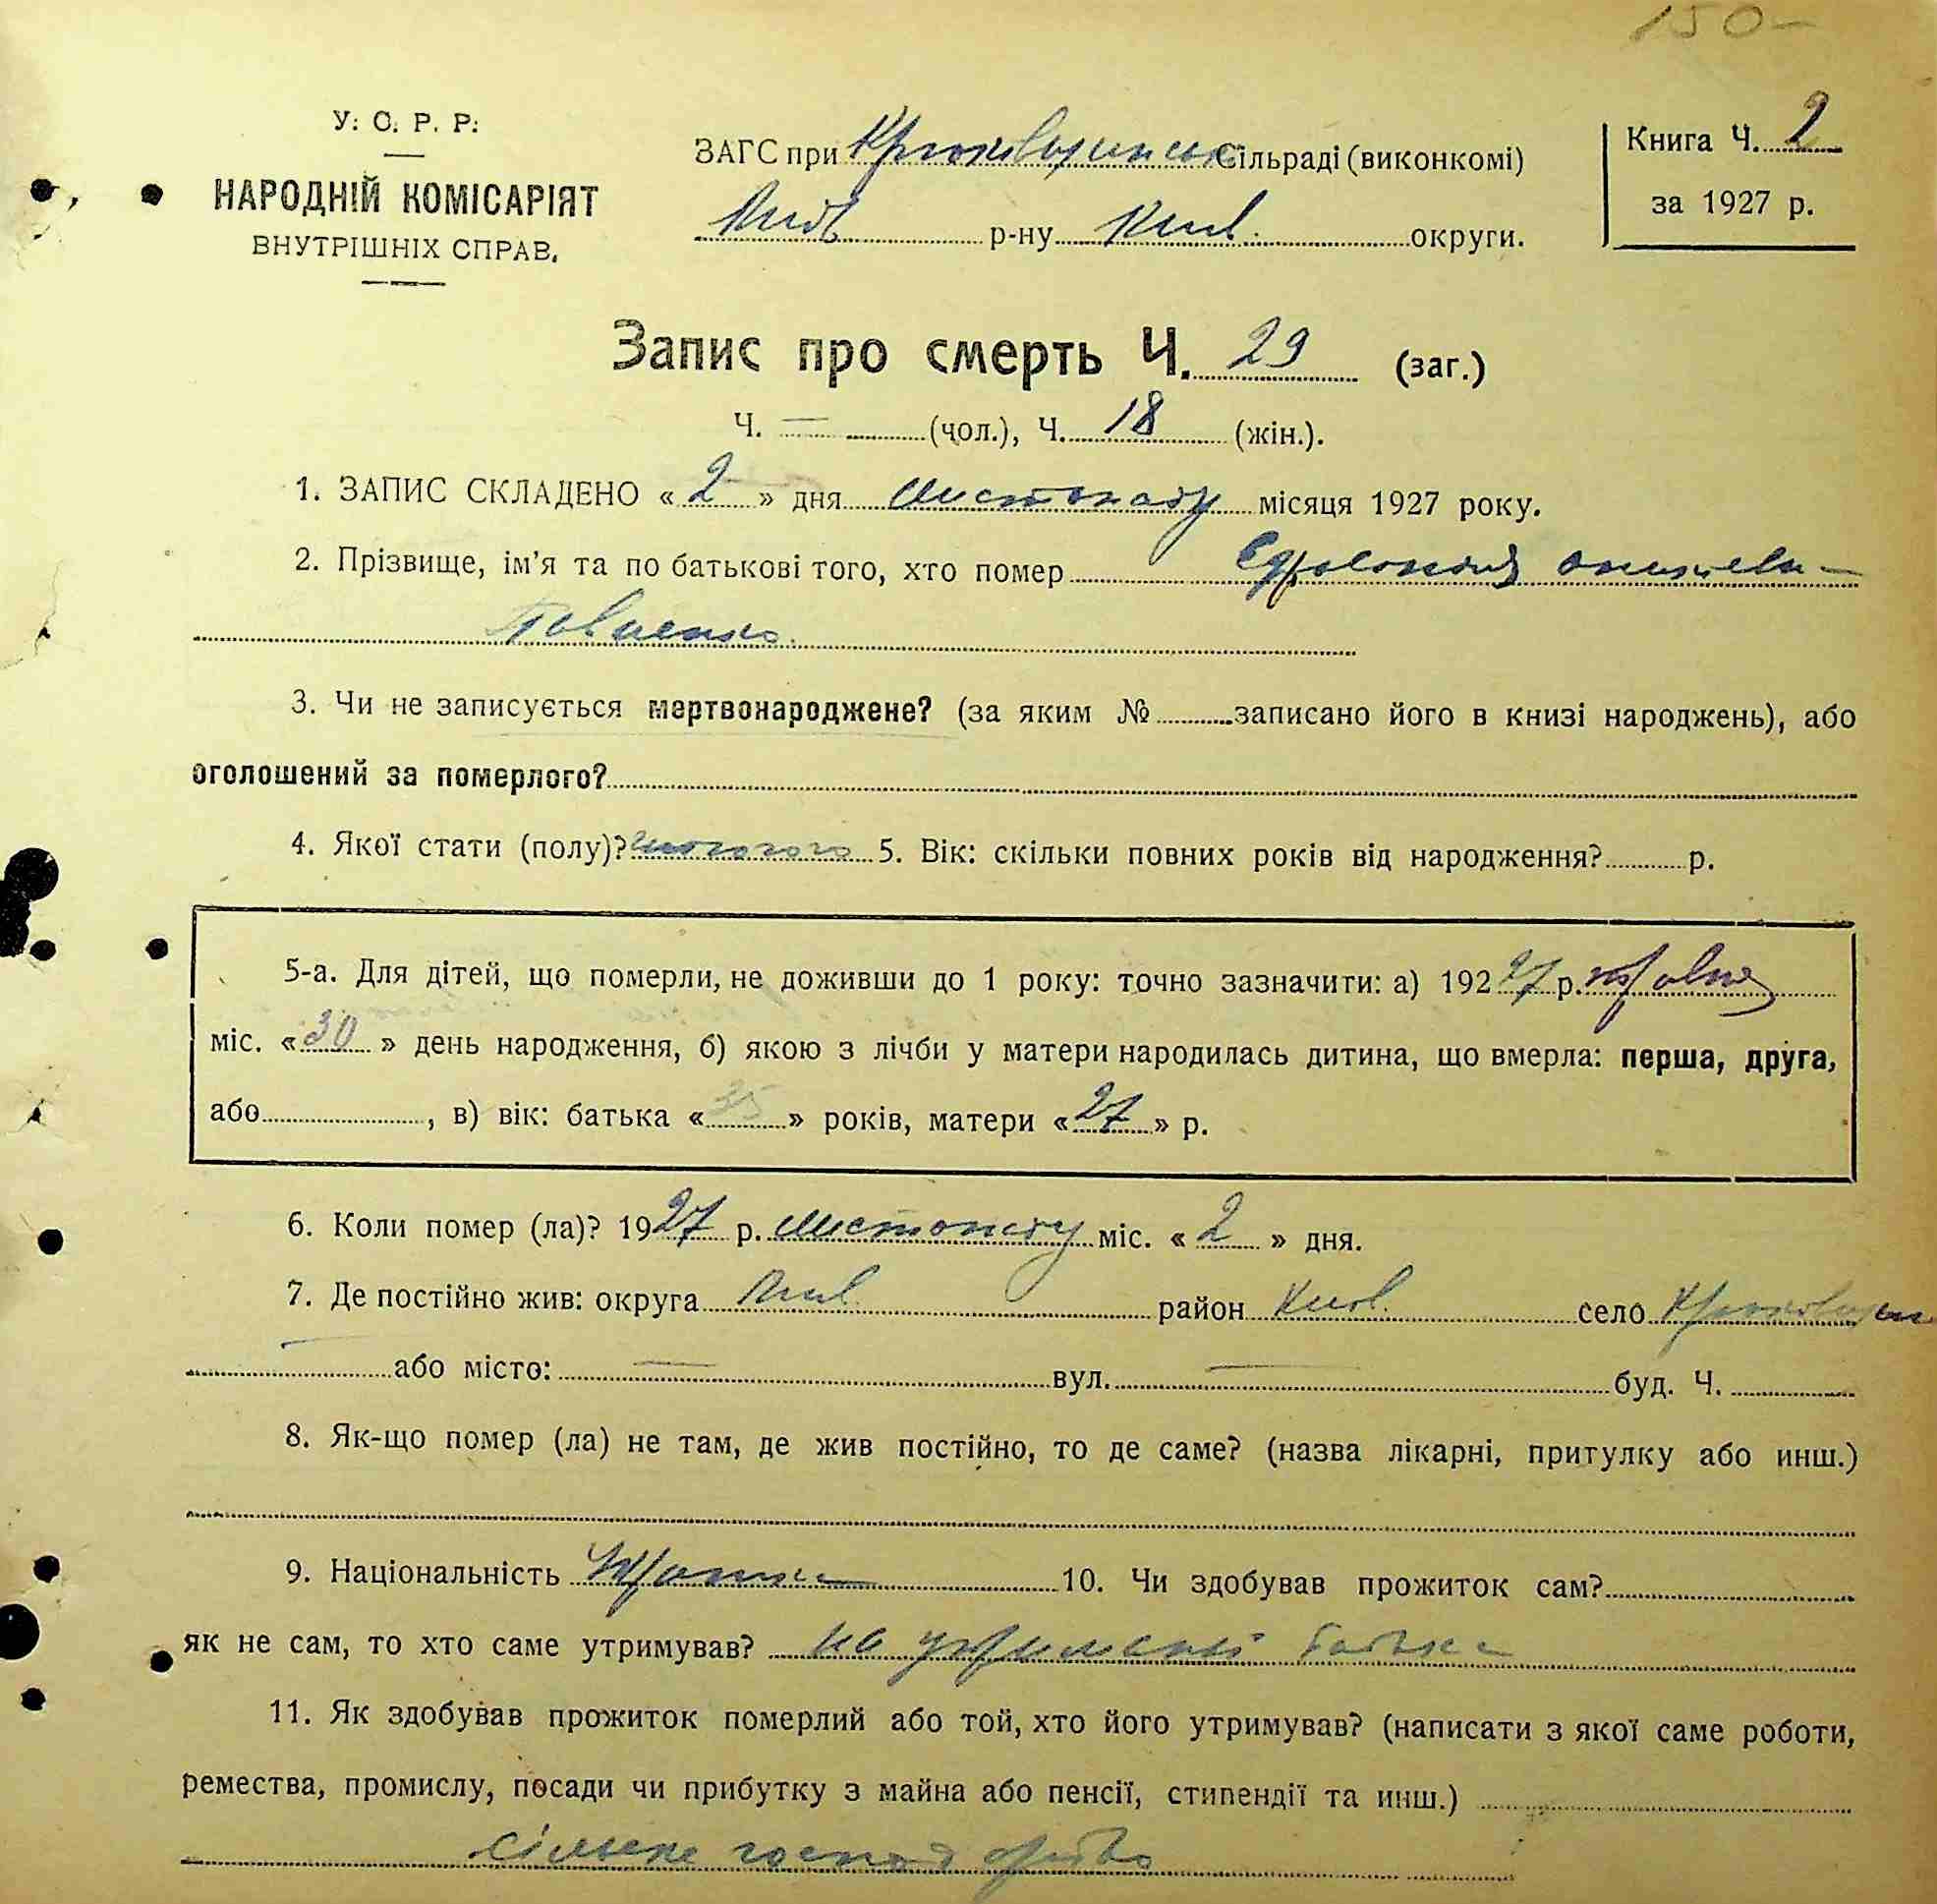 150-
У. С. Р. Р.
НАРОДНІЙ КОМІСАРІЯТ
ВНУТРІШНІХ СПРАВ.
ЗАГС при Крюковщинськ. Сільраді (виконкомі)
Київ р-ну Київ. округи.
Книга Ч. 2
за 1927 р.
Запис про смерть Ч. 29 (заг.)
Ч. — (чол.), Ч. 18 (жін.).
1. ЗАПИС СКЛАДЕНО « 2 » дня листопаду місяця 1927 року.
2. Прізвище, ім'я та по батькові того, хто помер
3. Чи не записується мертвонароджене? (за яким № записано його в книзі народжень), або
оголошений за померлого?
4. Якої стати (полу)? жіночого 5. Вік: скільки повних років від народження? р.
5-а. Для дітей, що померли, не доживши до 1 року: точно зазначити: а) 1927 р.
міс. « 30 » день народження, б) якою з лічби у матери народилась дитина, що вмерла: перша, друга,
або , в) вік: батька « 35 » років, матери « 27 » р.
6. Коли помер (ла)? 1927 р. листопаду міс. « 2 » дня.
7. Де постійно жив: округа Київ район Київ. село Крюковщин
або місто: — вул. — буд. Ч.
8. Як-що помер (ла) не там, де жив постійно, то де саме? (назва лікарні, притулку або инш.)
9. Національність Українка 10. Чи здобував прожиток сам?
як не сам, то хто саме утримував? на утриманні батька
11. Як здобував прожиток померлий або той, хто його утримував? (написати з якої саме роботи,
ремества, промислу, посади чи прибутку з майна або пенсії, стипендії та инш.)
сільське господарство